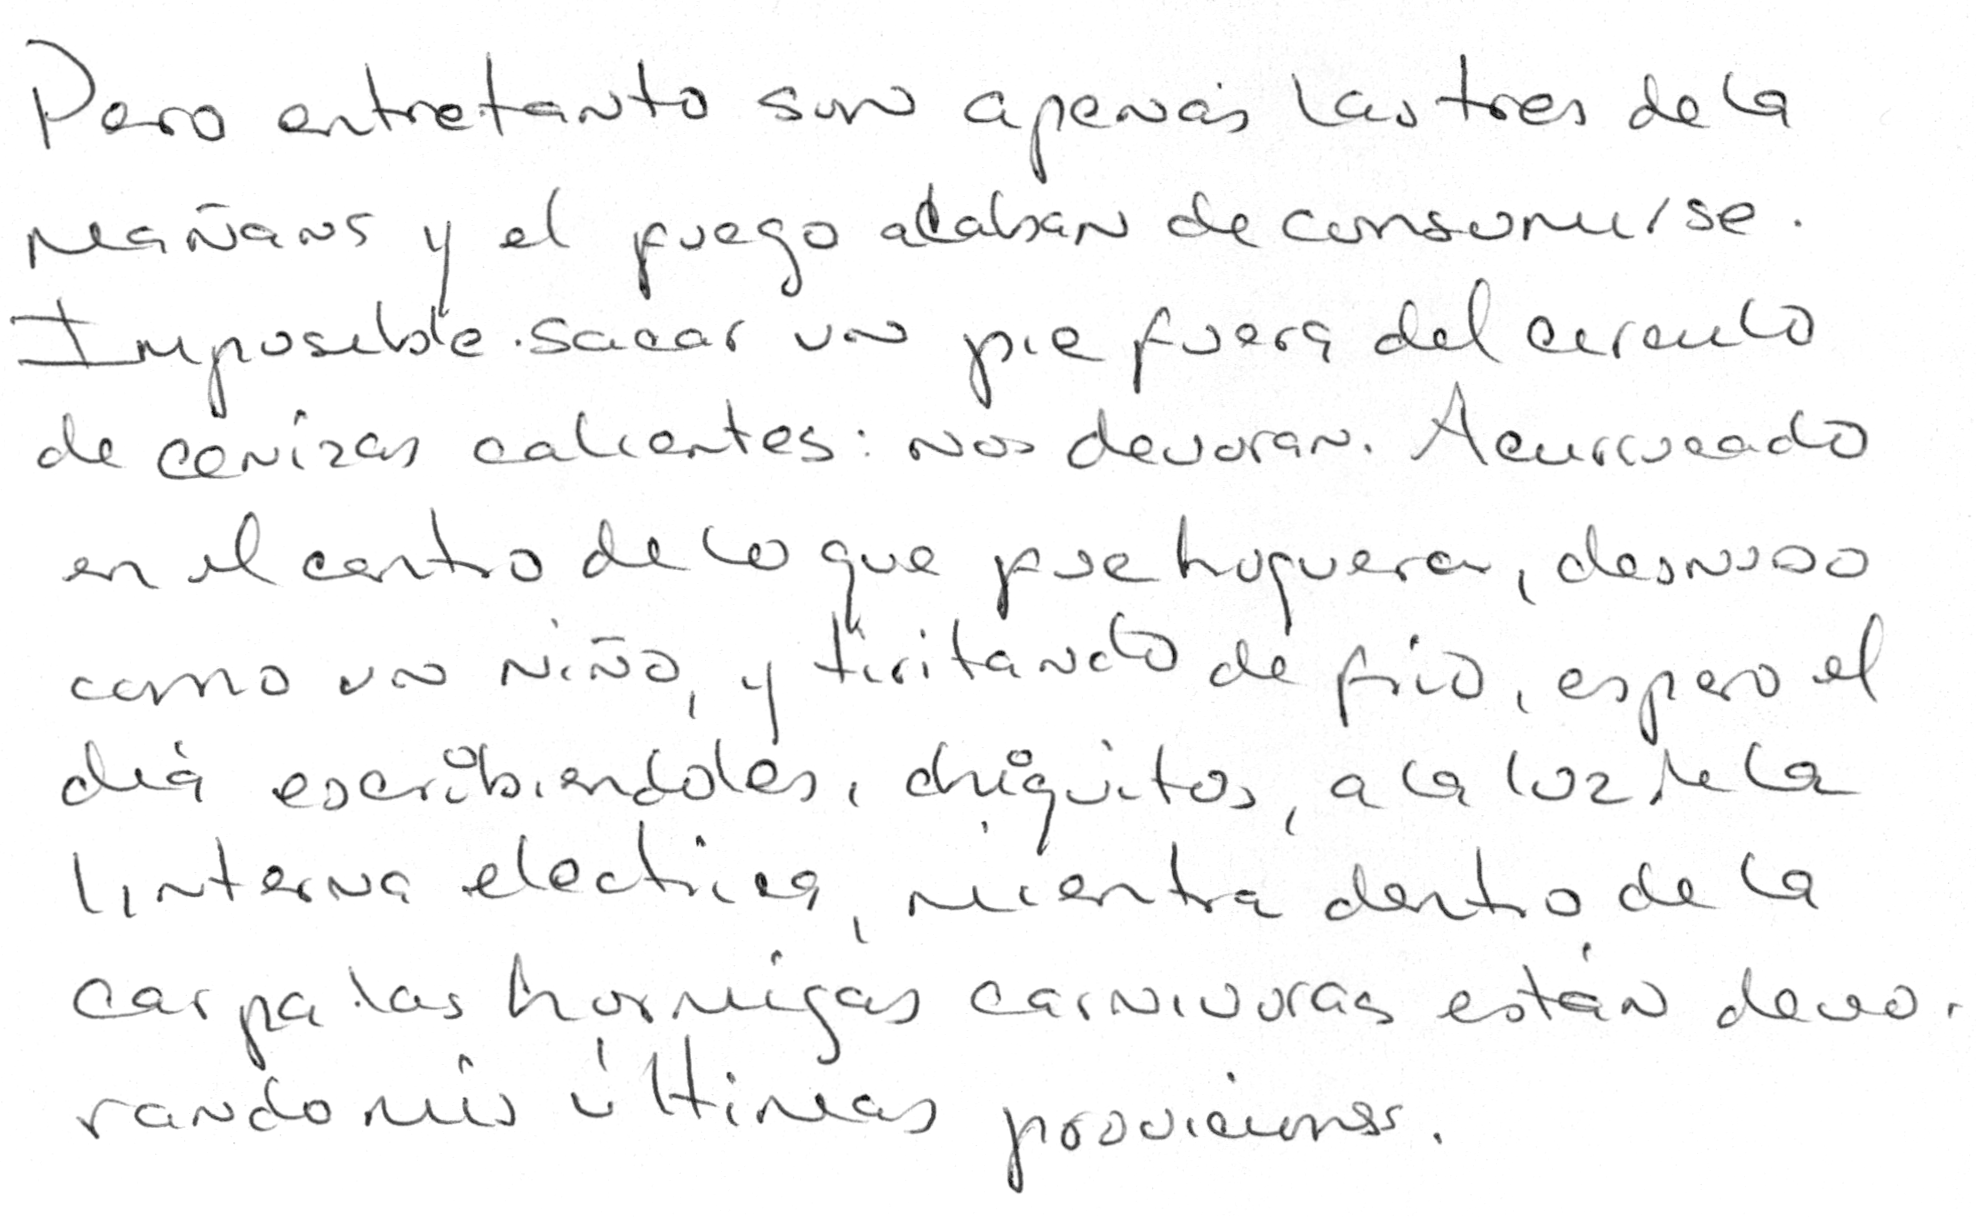 Pero entretanto son apenas las tres de la
mañans y el fuego acaban de consumirse.
Imposible sacar un pie fuera del circulo
de cenizas calientes: nos devoran. Acurrucado
en el centro de lo que fue hoguera, desnudo
como un niño, y tiritando de frío, espero el
día escribiendoles, chiquitos, a la luz de la
linterna electrica, mientra dentro de la
carpa las hormigas carnivoras están devo-
rando mis últimas proviciones.